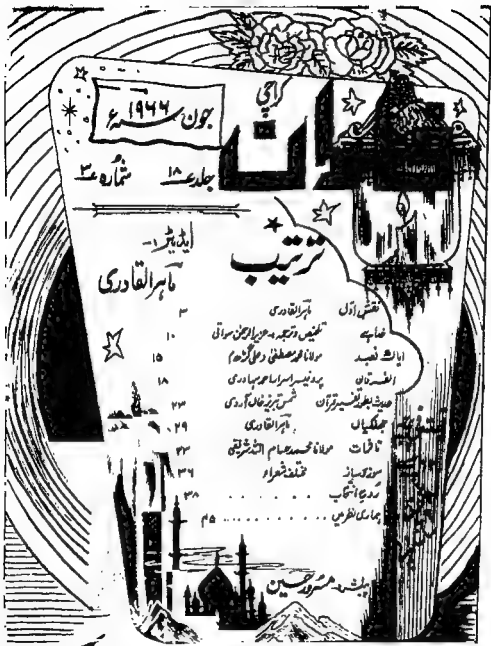 کراچی
فاران
جون ۱۹۶۶ء
جلد ۱۸ شمارہ ۳
ترتیب
ایڈیٹر:-
ماہر القادری
نقش اول ماہر القادری ۳
تلخیص و ترجمہ عزیز الرحمٰن سواتی ۱۰
ایاک نعبد مولانا محمد مصطفیٰ (علی گڑھ) ۱۵
الفرقان پروفیسر اسرار احمد سہاوری ۱۸
حدیث بطور تفسیر قرآن شمس تبریز خاں آروی ۲۳
جھلکیاں ماہر القادری ۲۹
تاثرات مولانا محمد صمصام اللہ شریفی
سوز و ساز مختلف شعراء ۳۶
روح انتخاب . . . . . . ۳۸
ہماری نظر میں . . . . . . . . ۴۵
پبلشر:- مسرور حسین